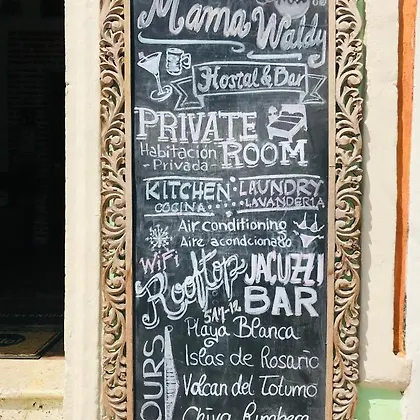 Mama Waldy
Hostal & Bar
PRIVATE
Habitación
- Privada -
ROOM
KITCHEN
COCINA
LAUNDRY
LAVANDERIA
Air conditioning
Aire acondcionado
WiFi
Rooftop
JACUZZI
BAR
TOURS
Playa Blanca
Islas de Rosario
Volcan del Totumo
Chiva Rumbera